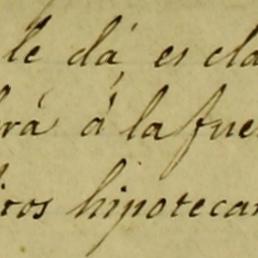 le dá, es cla
rá á la fue
ros hipoteca